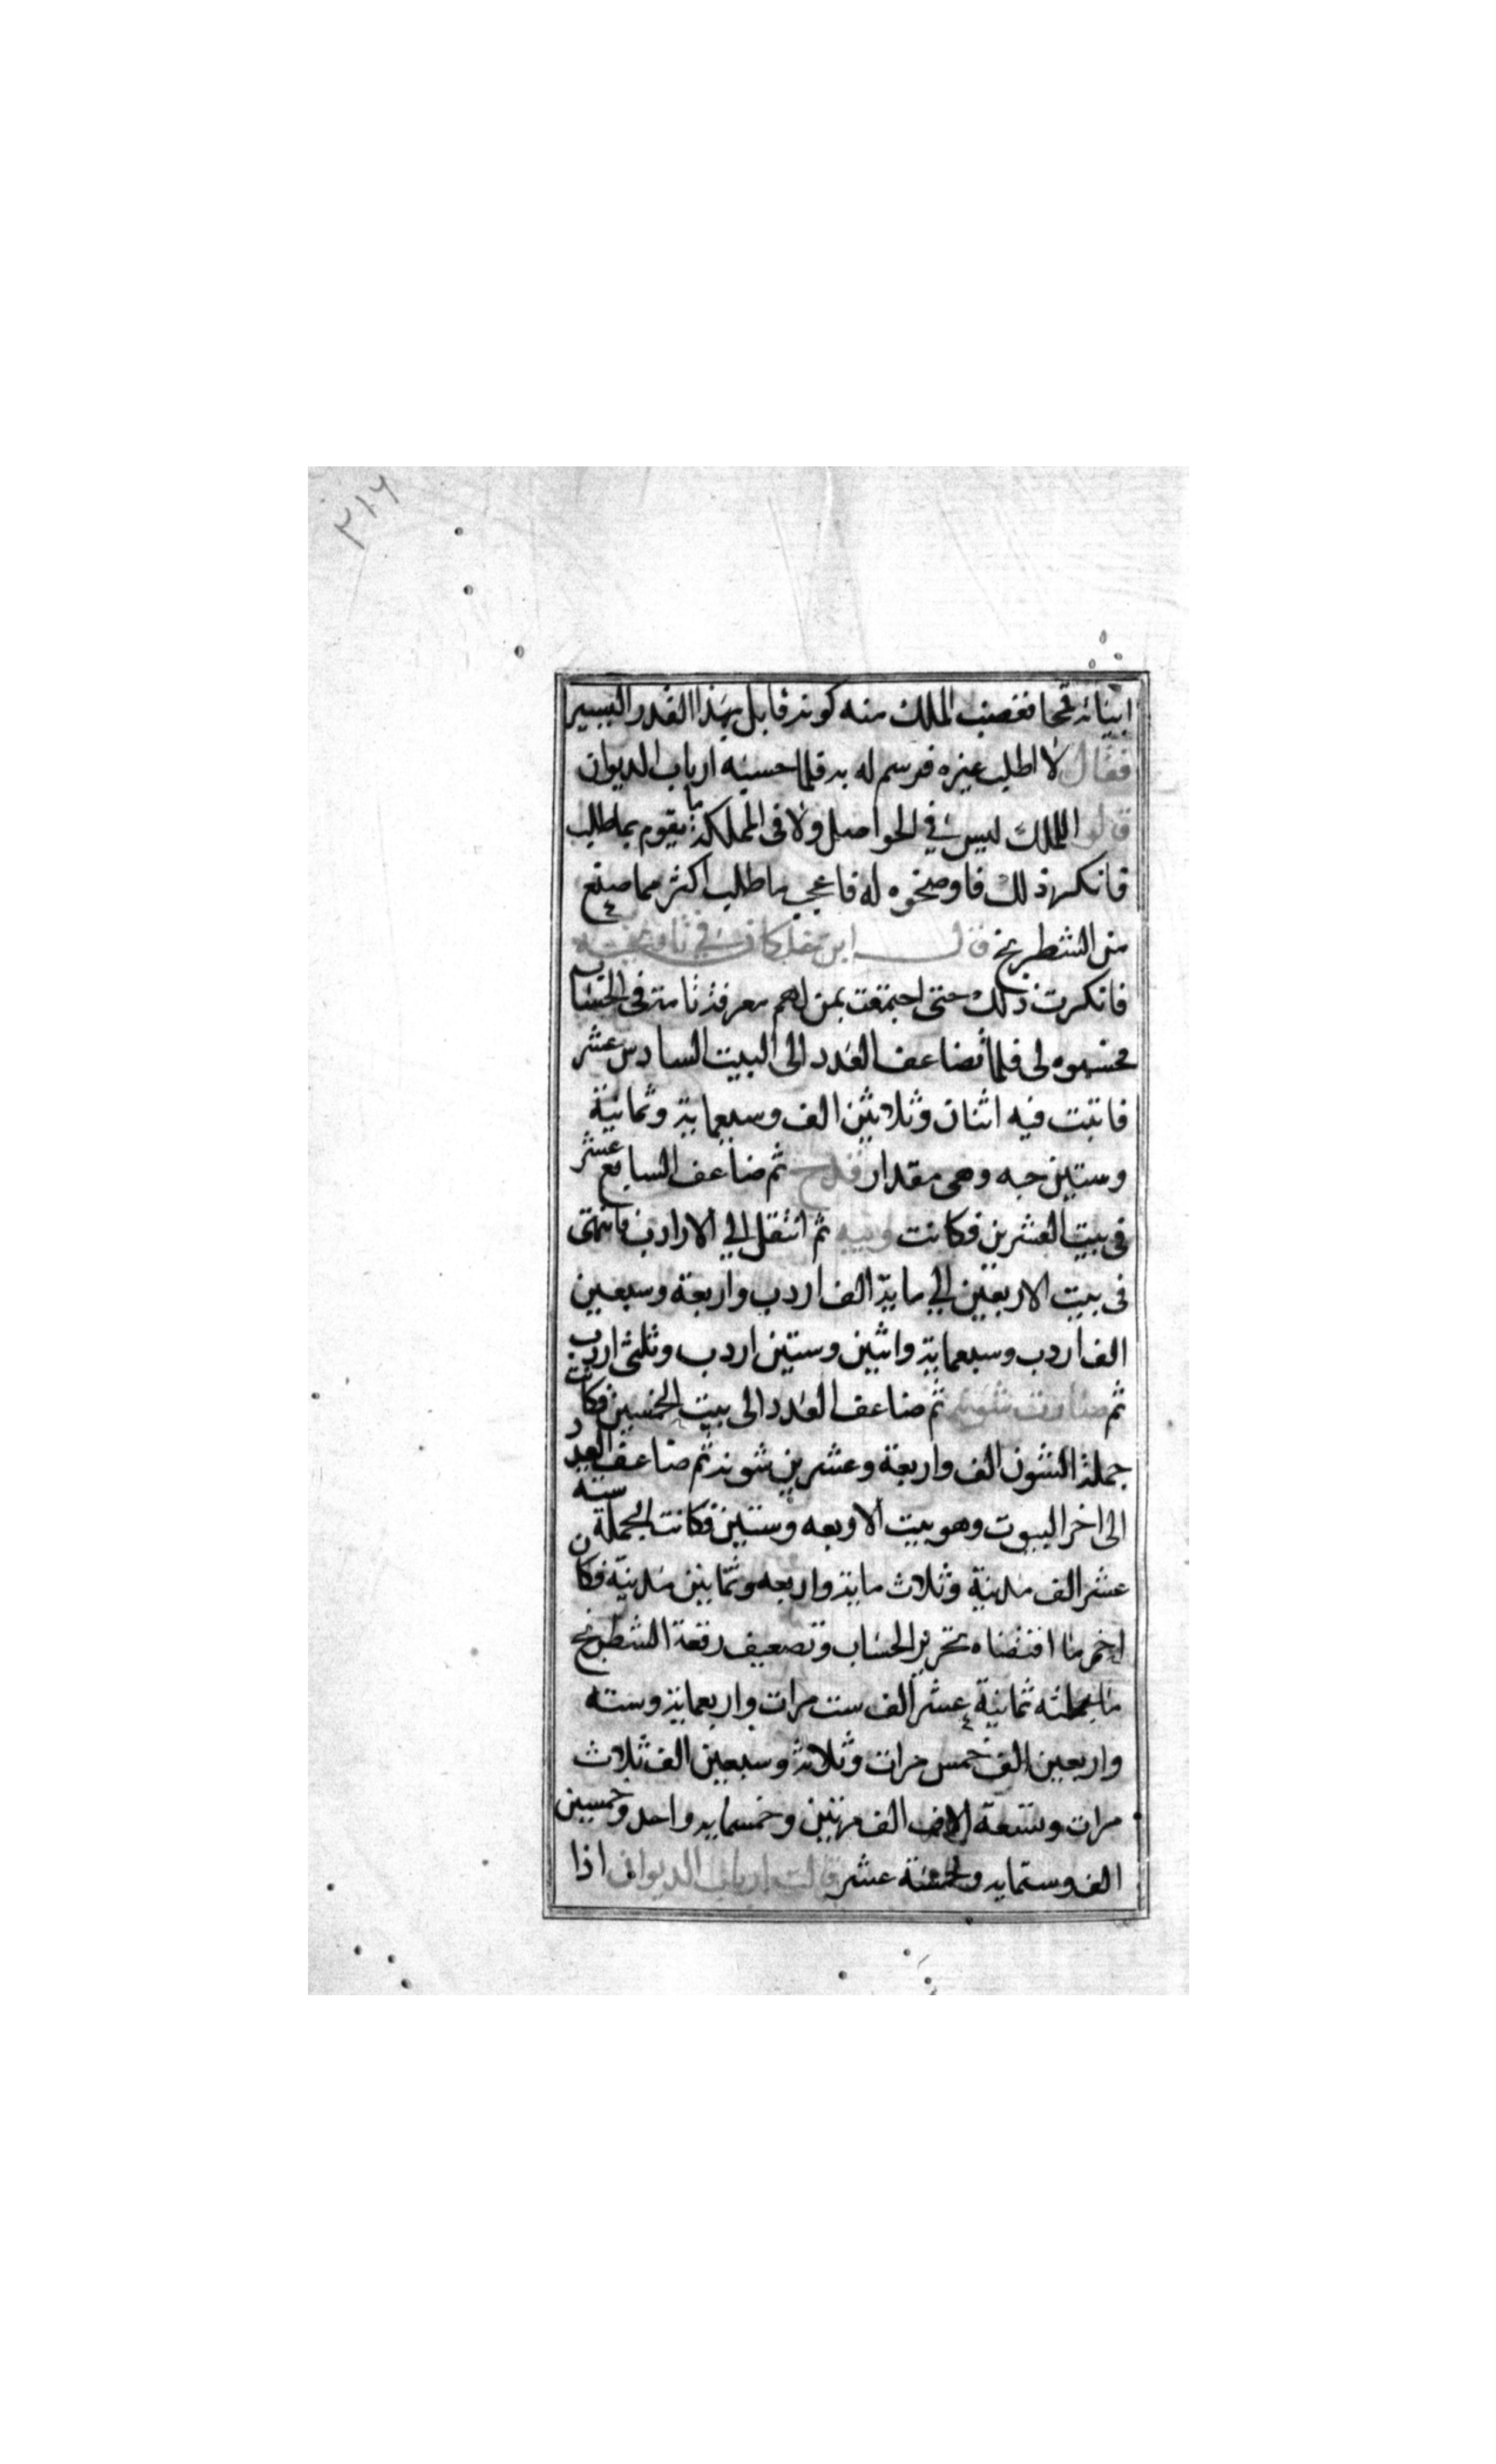 ٣١٦
ابياته قمحا فغضب الملك منه كونه قابل بهذا القدر اليسير
فقال لا اطلب غيره فرسم له به فلما حسبه ارباب الديوان
قالوا للملك ليس في الحواصل ولا فى المملكة ما يقوم بما طلب
فانكر ذلك فاوضحوه له فاعجب ما طلب اكثر مما صنع
من الشطرنج قال ابن خلكان في تاريخه
فانكرت ذلك حتى اجتمعت بمن لهم معرفة تامة فى الحساب
فحسبوه لى فلما تضاعف العدد الى البيت السادس عشر
فاثبت فيه اثنان وثلاثين الف وسبعماية وثمانية
وستين حبه وهى مقدار قدح ثم ضاعف السابع عشر
فى بيت العشرين فكانت ويبه ثم انتقل الي الارادب فانتهى
فى بيت الاربعين الي ماية الف اردب واربعة وسبعين
الف اردب وسبعماية واثنين وستين اردب وثلثى اردب
ثم صارت شونه ثم ضاعف العدد الى بيت الخمسين فكانت
جملة الشون الف واربعة وعشرين شونه ثم ضاعف العدد
الى اخر البيوت وهو بيت الاربعه وستين فكانت الجملة سته
عشر الف مدينة وثلاث ماية واربعه وثمانين مدينة فكان
اخر ما اقتضاه تحرير الحساب وتضعيف رقعة الشطرنج
ما جملته ثمانية عشر الف ست مرات واربعماية وسته
واربعين الف خمس مرات وثلاثة وسبعين الف ثلاث
مرات وتسعة الاف الف مرتين وخمسمايه واحد وخمسين
الف وستمايه وخمسة عشر قالت ارباب الديوان اذا